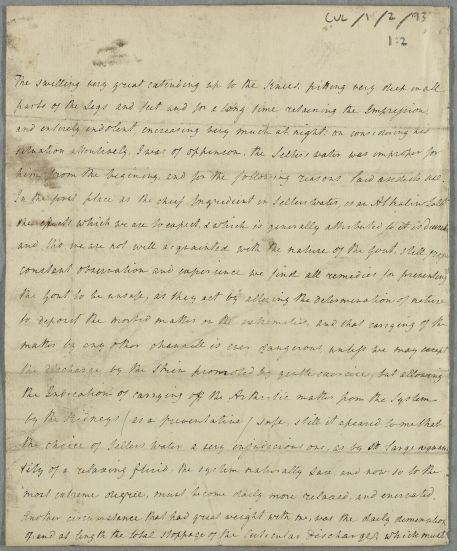 CUL/1/2/93
1:2
The swelling very great extending up to the Knees, pitting very deep in all
parts of the Legs and feet and for a long time retaining the Impression,
and entirely indolent, encreasing very much at night; on considering his
situation attentively, I was of oppineon, the Selters water was improper for
him from the begining, and for the following reasons, laid aside its use.
In the first place as the chief Ingredient in Selters water, is an Alkaline Salt
the effects which we are to expect, & which is generally attributed to it is Diuresis
and tho' we are not well acquainted with the nature of the Gout, still from
constant observation and experience we find all remedies for preventing
the Gout to be unsafe, as they act by altering the determination of nature
to deposit the morbid matter on the extremeties, and that carrying of the
matter by any other channell is ever dangerous unless we may except
the discharge by the Skin promoted by gentle exercise, but allowing
the Indication of carrying off the Arthritic matter from the System
by the Kidneys (as a preventative) safe, still it apeared to me that
the choice of Selters water a very injudicious one, as by large quan
tity of a relaxing fluid, the system naturally lax, and now so to the
most extreme degree, must become daily more relaxed, and enervated.
Another circumstance that had great weight with me, was the daily demenution
of, and at length the total stoppage of the Cuticular discharges, which must